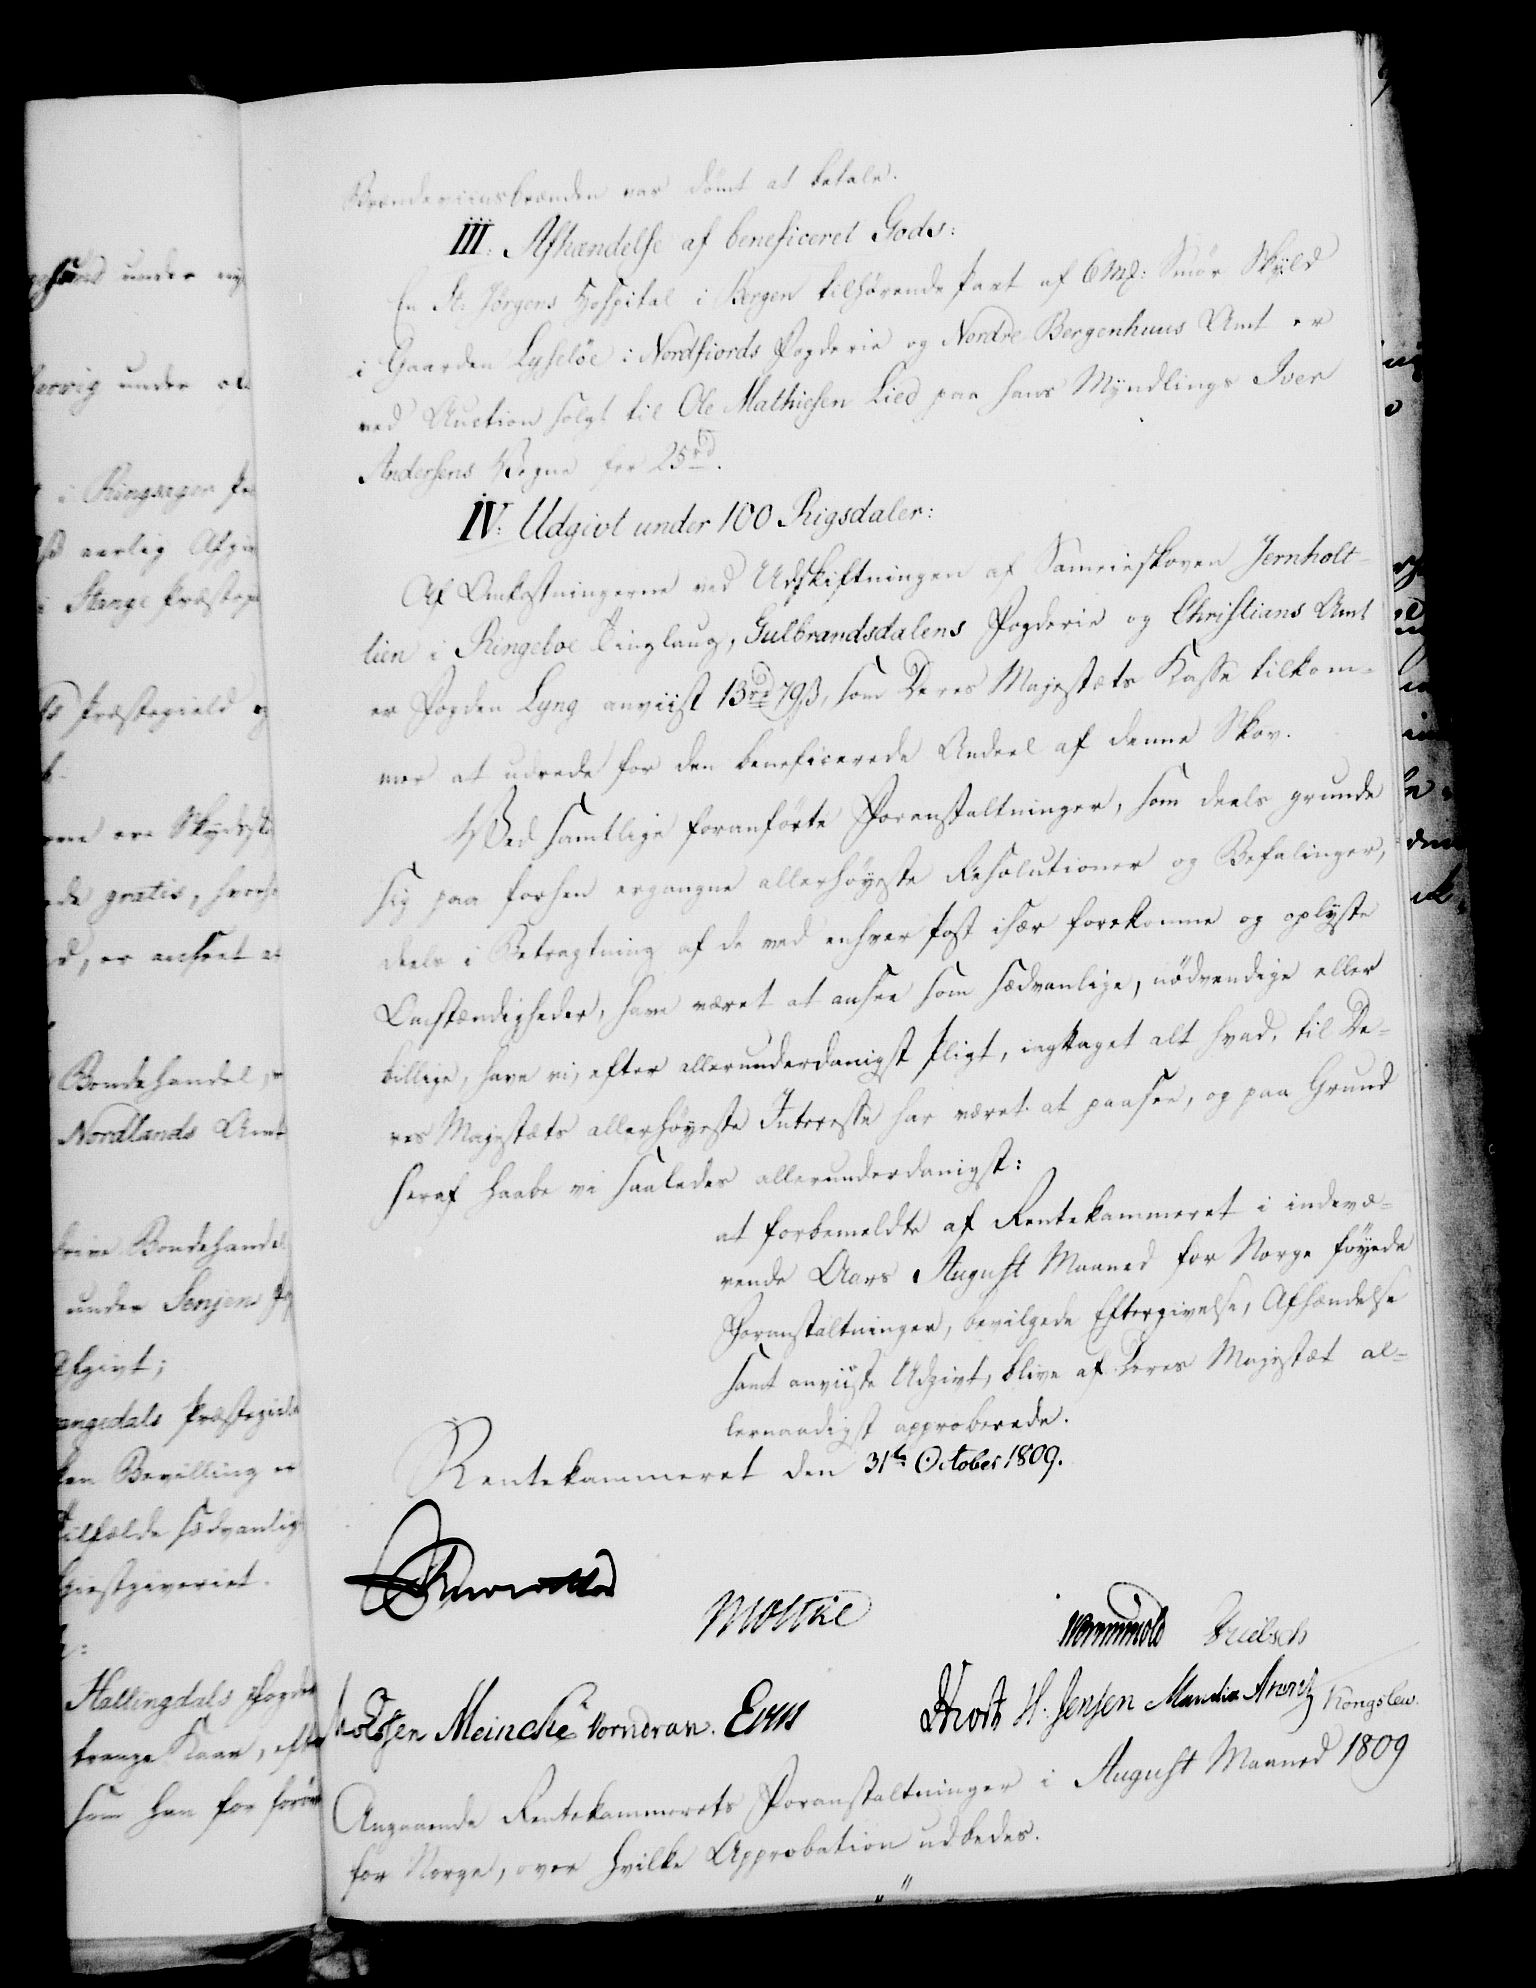 Brændeviinsbrænden var dömt at betale.
III: Afhændelse af beneficeret Gods:
En St: Jörgens Hospital i Bergen tilhørende Part af 6 Mk: Smør Skyld
i Gaarden Lyseløe i Nordfiords Fogderie og Nordre Bergenhuus Amt er
ved Auction solgt til Ole Mathiesen Lied paa hans Myndlings Iver
Andersens Vegne for 25 rd.
IV: Udgivt under 100 Rigsdaler:
Af Omkostningerne ved Udskiftningen af Sameieskoven Jernholt-
lien i Ringeboe Tinglaug, Gulbrandsdalens Fogderie og Christians Amt
er Fogden Lyng anviist 13 rd 79 ß, som Deres Majestæts Kasse tilkom-
mer at udrede for den beneficerede Andeel af denne Skov.
Ved samtlige foranførte Foranstaltninger, som deels grunde
sig paa forhen ergangne allerhøyeste Resolutioner og Befalinger,
deels i Betragtning af de ved enhver Post især forekomne og oplyste
Omstændigheder, have været at ansee som sædvanlige, nödvendige eller
billige, have vi, efter allerunderdanigst Pligt, iagttaget alt hvad, til De-
res Majestæts allerhøyeste Interesse har været at paasee, og paa Grund
heraf haabe vi saaledes allerunderdanigst:
at forbemeldte af Rentekammeret i indevæ-
rende Aars August Maaned for Norge føyede
Foranstaltninger, bevilgede Eftergivelse, Afhændelse
samt anviiste Udgivt, blive af Deres Majestæt al-
lernaadigst approberede.
Rentekammeret den 31te October 1809.
Moltke
Wormskiold
Meincke Vorndran.
H: Jensen Manthei Arentz Kongslew.
Angaaende Rentekammerets Foranstaltninger i August Maaned 1809
for Norge, over hvilke Approbation udbedes.
under
under
i Ringsager
aarlig
Stange Præstegi
Præstegield og
gratis,
er anseet
Bondehandel,
Nordlands Amt
Bondehandel
under Senjens
Afgivt;
Præstegield
Bevilling er
sædvanlig
Giestgiveriet.
Hallingdals Fogde
trange Kaar, efte
som han for